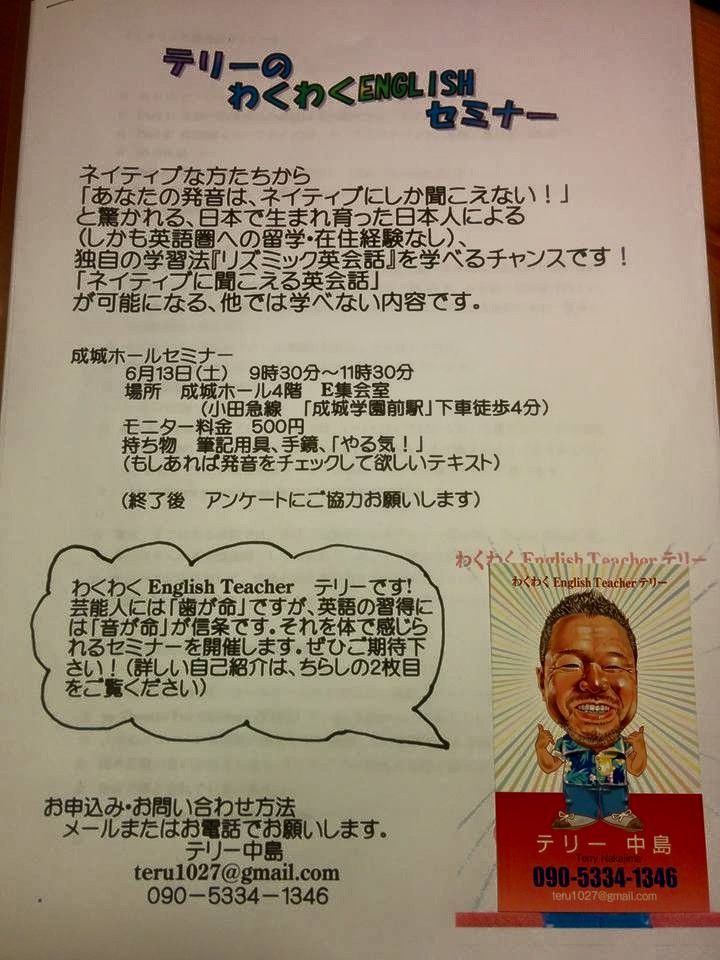 テリーの
わくわくENGLISH
セミナー
ネイティブな方たちから
「あなたの発音は、ネイティブにしか聞こえない！」
と驚かれる、日本で生まれ育った日本人による
(しかも英語圏への留学・在住経験なし)、
独自の学習法『リズミック英会話』を学べるチャンスです！
「ネイティブに聞こえる英会話」
が可能になる、他では学べない内容です。
成城ホールセミナー
6月13日(土) 9時30分～11時30分
場所 成城ホール4階 E集会室
(小田急線 「成城学園前駅」下車徒歩4分)
モニター料金 500円
持ち物 筆記用具、手鏡、「やる気！」
(もしあれば発音をチェックして欲しいテキスト)
(終了後 アンケートにご協力お願いします)
わくわく English Teacher テリーです!
芸能人には「歯が命」ですが、英語の習得に
は「音が命」が信条です。それを体で感じら
れるセミナーを開催します。ぜひご期待下
さい！(詳しい自己紹介は、ちらしの2枚目
をご覧ください)
お申込み・お問い合わせ方法
メールまたはお電話でお願いします。
テリー中島
teru1027@gmail.com
090-5334-1346
わくわく English Teacher テリー
わくわく English Teacher テリー
テリー 中島
Terry Nakajima
090-5334-1346
teru1027@gmail.com